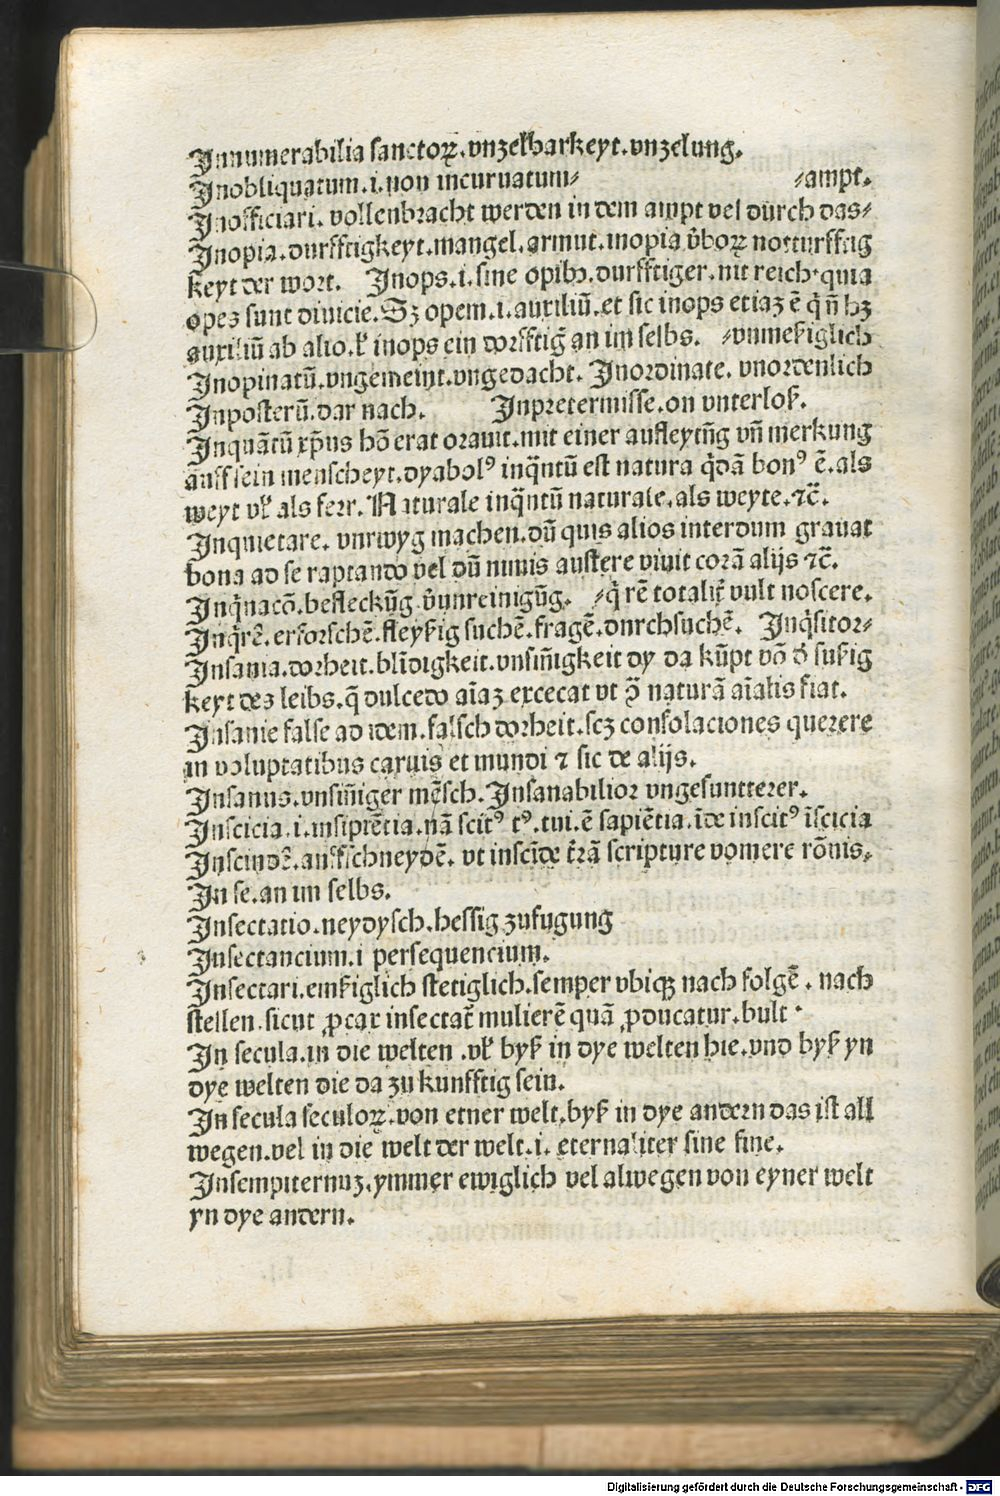 Innumerabilia sanctoꝝ.vnzelbarkeyt.vnzelung.
Inobliquatum.i.non incuruatum⸗ ⸗ampt.
Inofficiari. vollenbracht werden in dem ampt vel durch das⸗
Inopia.durfftigkeyt.mangel.armut.inopia v̉boꝝ notturfftig
keyt der wort. Inops.i.sine opibꝫ.durfftiger.nit reich.quia
opes sunt diuicie.Sꝫ opem.i.auxiliū.et sic inops etiaz ē q̇ n̄ hꝫ
auxiliū ab alio.ꝉ inops ein dorfftig̉ an im selbs. ⸗vnmeßiglich
Inopinatū.vngemeint.vngedacht. Inordinate. vnordenlich
Inposterū.dar nach. Inpretermisse.on vnterloß.
Inquātū xp̄us hō erat orauit.mit einer aufleytūg vn̄ merkung
auff sein menscheyt.dyabolꝰ inq̄ntū est natura q̇dā bonꝰ ē.als
weyt vꝉ als ferr. Naturale inq̄ntū naturale.als weyte.⁊c̄.
Inquietare. vnrwyg machen.dū quis alios interdum grauat
bona ad se raptando vel dū nimis austere viuit corā alijs ⁊c̄.
Inq̇nacō.befleckūg.v̉unreinigūg. ⸗q̇ rē totalit̉ vult noscere.
Inq̇rē.erforschē.fleyßig suchē.fragē.durchsuchē. Inq̇sitor⸗
Insania.dorheit.blīdigkeit.vnsin̄igkeit dy da kūpt vō d̉ sußig
keyt des leibs.q̄ dulcedo aīaz excecat vt ꝯ̄ naturā aīalis fiat.
Insanie false ad idem.falsch dorheit.scꝫ consolaciones querere
in voluptatibus carnis et mundi ⁊ sic de alijs.
Insanus.vnsin̄iger mēsch.Insanabilior vngesuntterer.
Inscicia.i.insipiētia.nā scitꝰ tꝰ.tui.ē sapiētia.īde inscitꝰ īscicia
Inscindē.auffschneydē. vt inscīde t̄rā scripture vomere rōnis.
In se.an im selbs.
Insectatio.neydysch.hessig zufugung
Insectancium.i persequencium.
Insectari.emßiglich stetiglich.semper vbiqꝫ nach folgē. nach
stellen.sicut ꝓcax insectat̄ mulierē quā ꝓducatur.bult.
In secula.in die welten .vꝉ byß in dye welten hie.vnd byß yn
dye welten die da zu kunfftig sein.
In secula seculoꝝ.von etner welt.byß in dye andern das ist all
wegen.vel in die welt der welt.i. eternaliter sine fine.
Insempiternuz.ymmer ewiglich vel alwegen von eyner welt
yn dye andern.
Digitalisierung gefördert durch die Deutsche Forschungsgemeinschaft - DFG